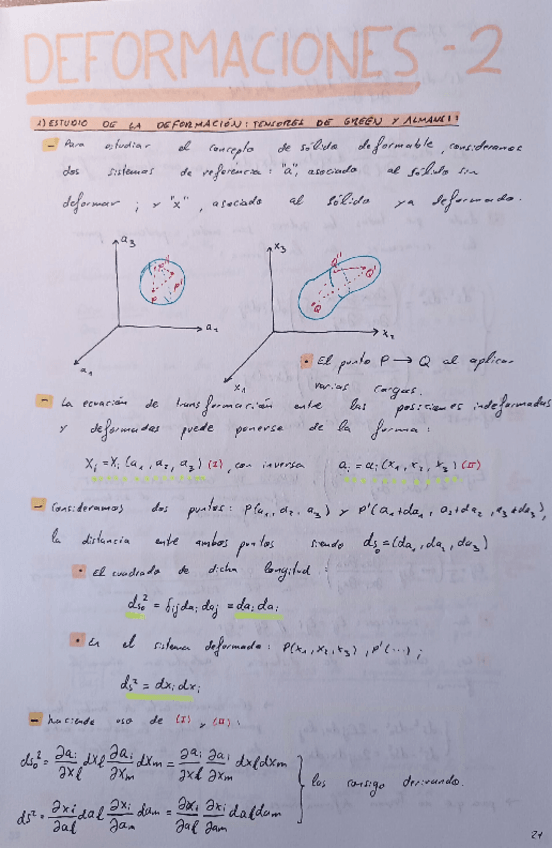 DEFORMACIONES - 2
1) ESTUDIO DE LA DEFORMACIÓN: TENSORES DE GREEN Y ALMANSI:
- Para estudiar el concepto de sólido deformable, consideramos
dos sistemas de referencia: "a", asociado al sólido sin
deformar; y "x", asociado al sólido ya deformado.
a₃ P'' P P' a₁ a₁
x₃ Q'' Q' Q x₂ x₁
• El punto P → Q al aplicar
varias cargas.
- La ecuación de transformación entre las posiciones indeformadas
y deformadas puede ponerse de la forma:
xᵢ = xᵢ (a₁, a₂, a₃) (I), con inversa aᵢ = aᵢ (x₁, x₂, x₃) (II)
- Consideramos dos puntos: P(a₁, a₂, a₃) y P'(a₁+da₁, a₂+da₂, a₃+da₃),
la distancia entre ambos puntos siendo ds₀ = (da₁, da₂, da₃)
• El cuadrado de dicha longitud:
ds₀² = δij daᵢ daⱼ = daᵢ daᵢ
• En el sistema deformado: P(x₁, x₂, x₃), P'(...);
ds² = dxᵢ dxᵢ
- haciendo uso de (I) y (II):
ds₀² = ∂aᵢ/∂xl dxl ∂aᵢ/∂xm dxm = ∂aᵢ/∂xl ∂aᵢ/∂xm dxl dxm
los consigo derivando.
ds² = ∂xᵢ/∂al dal ∂xᵢ/∂am dam = ∂xᵢ/∂al ∂xᵢ/∂am dal dam
21